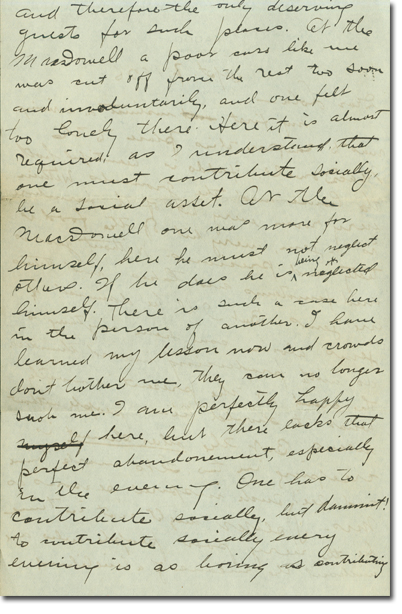 and therefore the only deserving
guests for such places. At the
MacDowell a poor case like me
was cut off from the rest too soon
and involuntarily, and one felt
too lonely there. Here it is almost
required, as I understand, that
one must contribute socially,
be a social asset. At the
MacDowell one was more for
himself, here he must not neglect
others. If he does he is being neglected
himself, there is such a case here
in the person of another. I have
learned my lesson now and crowds
dont bother me, they can no longer
suck me. I am perfectly happy
myself here, but there lacks that
perfect abandonement, especially
in the evening. One has to
contribute socially, but dammit!
to contribute socially every
evening is as boring as contributing